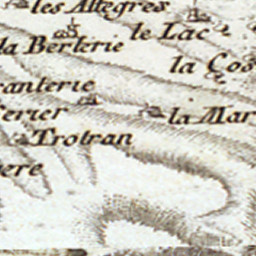 les Allegres
le Lac
la Berterie
la Cos
anterie
la Mar
erier
Trotran
ere